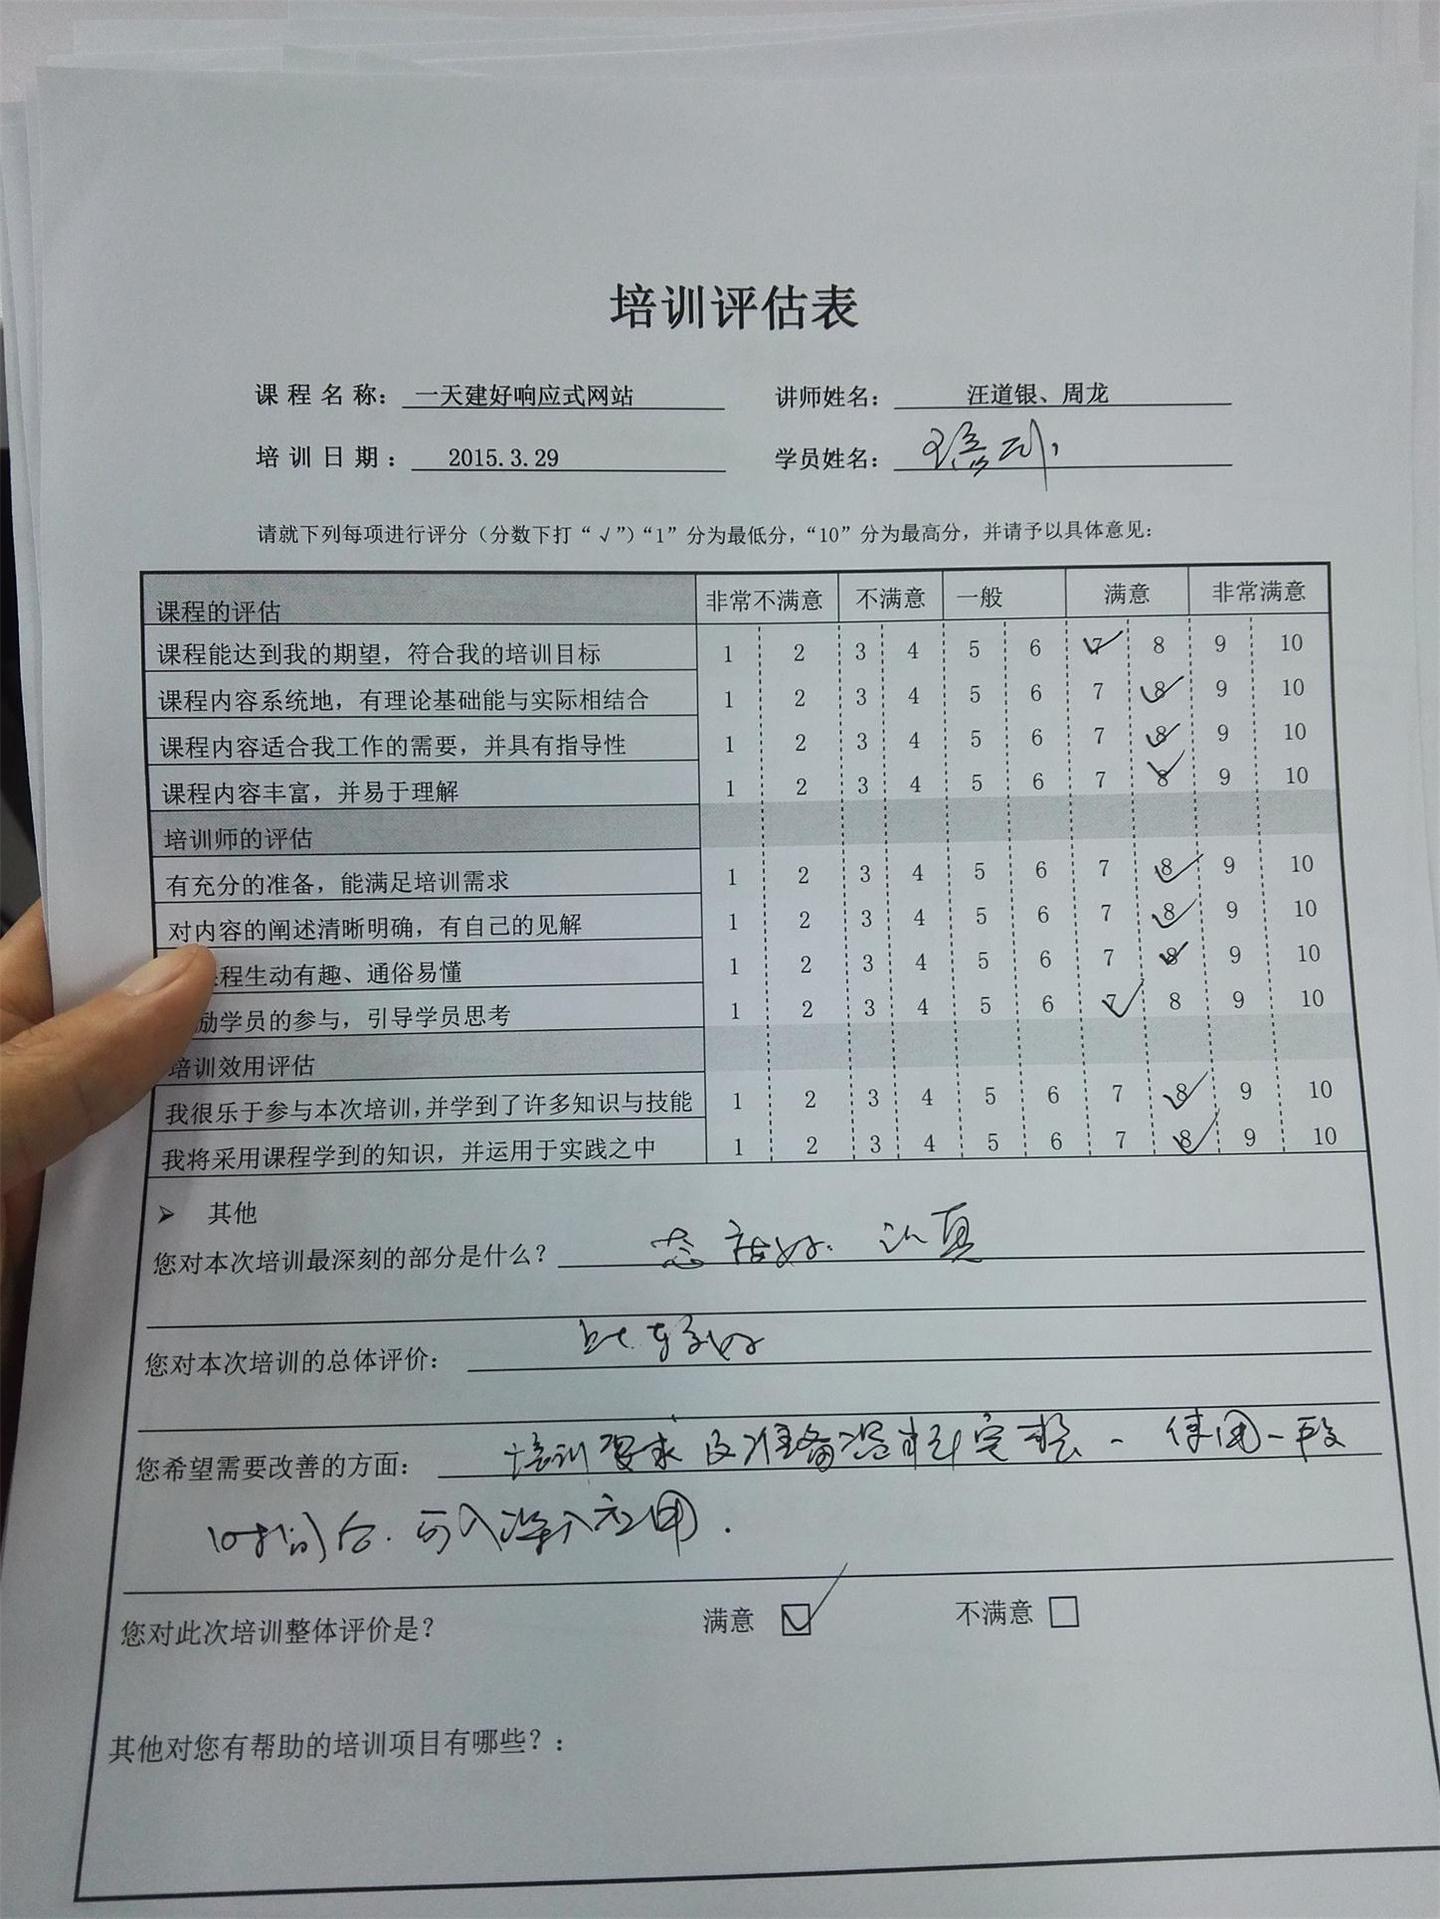 培训评估表
课程名称： 一天建好响应式网站 讲师姓名： 汪道银、周龙
培训日期： 2015.3.29 学员姓名：
请就下列每项进行评分（分数下打“√”）“1”分为最低分，“10”分为最高分，并请予以具体意见：
课程的评估 非常不满意 不满意 一般 满意 非常满意
课程能达到我的期望，符合我的培训目标 1 2 3 4 5 6 7 8 9 10
课程内容系统地，有理论基础能与实际相结合 1 2 3 4 5 6 7 8 9 10
课程内容适合我工作的需要，并具有指导性 1 2 3 4 5 6 7 8 9 10
课程内容丰富，并易于理解 1 2 3 4 5 6 7 8 9 10
培训师的评估
有充分的准备，能满足培训需求 1 2 3 4 5 6 7 8 9 10
对内容的阐述清晰明确，有自己的见解 1 2 3 4 5 6 7 8 9 10
课程生动有趣、通俗易懂 1 2 3 4 5 6 7 8 9 10
励学员的参与，引导学员思考 1 2 3 4 5 6 7 8 9 10
培训效用评估
我很乐于参与本次培训，并学到了许多知识与技能 1 2 3 4 5 6 7 8 9 10
我将采用课程学到的知识，并运用于实践之中 1 2 3 4 5 6 7 8 9 10
➢ 其他
您对本次培训最深刻的部分是什么？ 态度好. 认真
您对本次培训的总体评价： 比较好
您希望需要改善的方面： 培训要求及准备资料完整 使用一段
时间后. 可入深入应用.
您对此次培训整体评价是？ 满意 ☑ 不满意 □
其他对您有帮助的培训项目有哪些？：